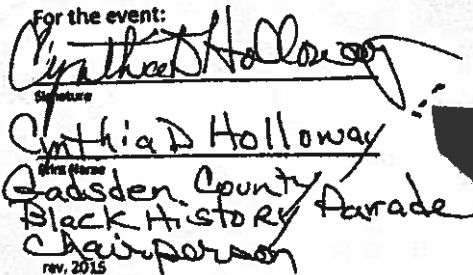 For the event:
Cynthia D Holloway
Signature
Cynthia D Holloway
Print Name
Gadsden County
Black History Parade
Chairperson
rev. 2015